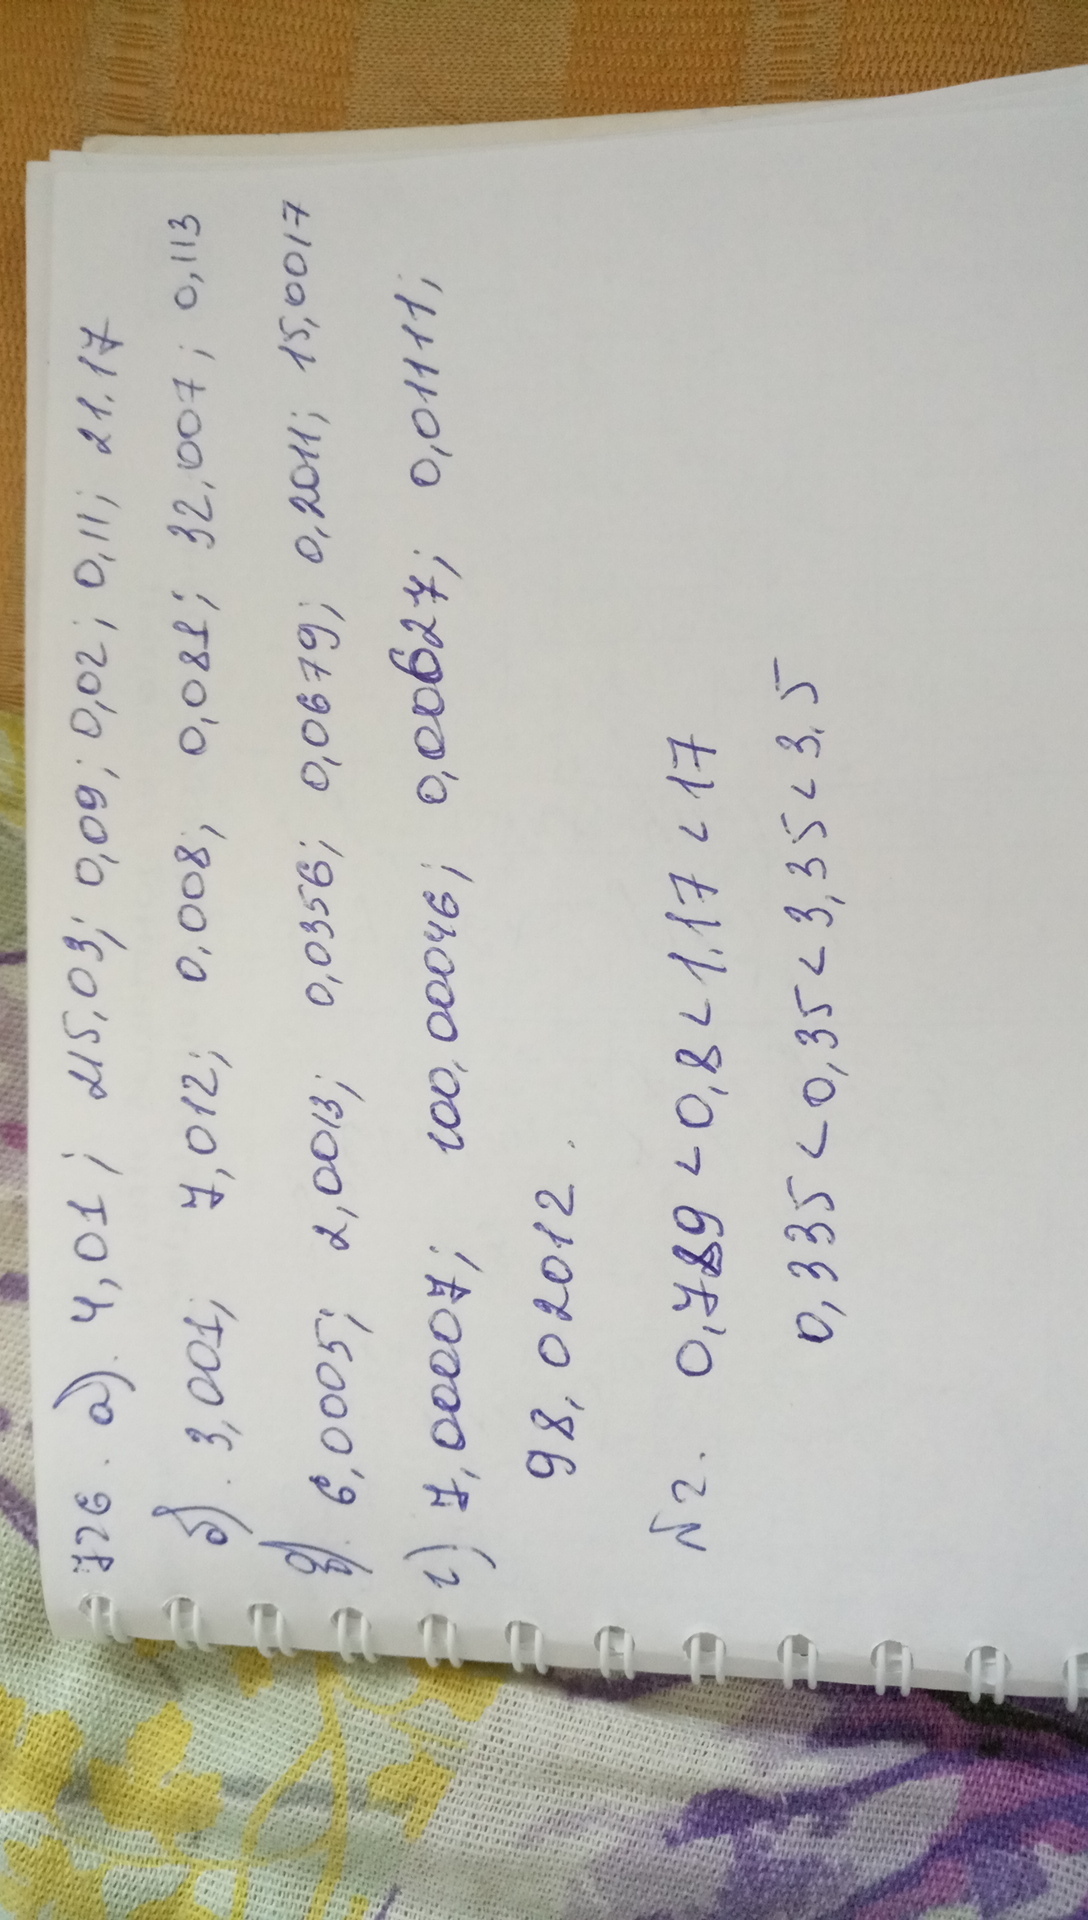 726. а). 4,01; 215,03; 0,09; 0,02; 0,11; 21,17
б). 3,001; 7,012; 0,008; 0,081; 32,007; 0,113
в). 6,0005; 2,0013; 0,0356; 0,0679; 0,2011; 15,0017
г) 7,00007; 100,00046; 0,00627; 0,01111;
98,02012.
N2. 0,789 < 0,8 < 1,17 < 17
0,335 < 0,35 < 3,35 < 3,5